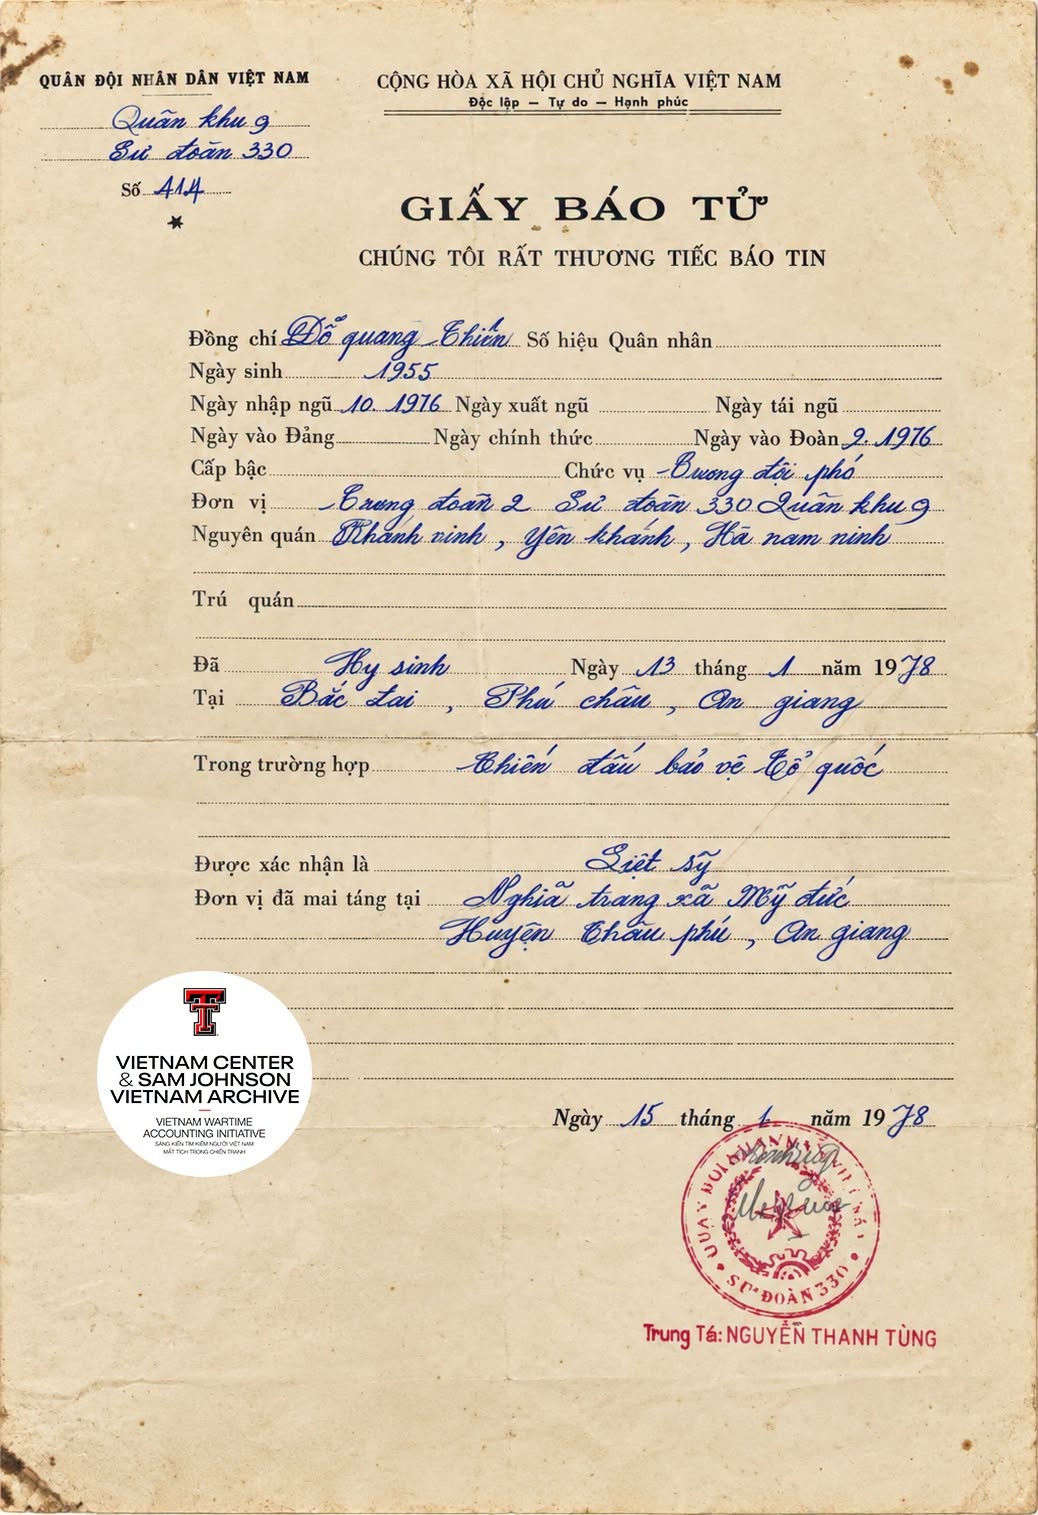 QUÂN ĐỘI NHÂN DÂN VIỆT NAM
Quân khu 9
Sư đoàn 330
Số 414
CỘNG HÒA XÃ HỘI CHỦ NGHĨA VIỆT NAM
Độc lập — Tự do — Hạnh phúc
GIẤY BÁO TỬ
CHÚNG TÔI RẤT THƯƠNG TIẾC BÁO TIN
Đồng chí Đỗ quang Thiên Số hiệu Quân nhân
Ngày sinh 1955
Ngày nhập ngũ 10. 1976 Ngày xuất ngũ Ngày tái ngũ
Ngày vào Đảng Ngày chính thức Ngày vào Đoàn 9. 1976
Cấp bậc Chức vụ Trung đội phó
Đơn vị Trung đoàn 2 Sư đoàn 330 Quân khu 9
Nguyên quán Khánh vinh, Yên khánh, Hà nam ninh
Trú quán
Đã Hy sinh Ngày 13 tháng 1 năm 1978
Tại Bắc đai, Phú châu, An giang
Trong trường hợp Chiến đấu bảo vệ Tổ quốc
Được xác nhận là Liệt sỹ
Đơn vị đã mai táng tại Nghĩa trang xã Mỹ đức
Huyện Châu phú, An giang
VIETNAM CENTER
& SAM JOHNSON
VIETNAM ARCHIVE
VIETNAM WARTIME
ACCOUNTING INITIATIVE
SÁNG KIẾN TÌM KIẾM NGƯỜI VIỆT NAM
MẤT TÍCH TRONG CHIẾN TRANH
Ngày 15 tháng năm 1978
SƯ ĐOÀN 330
Trung Tá: NGUYỄN THANH TÙNG